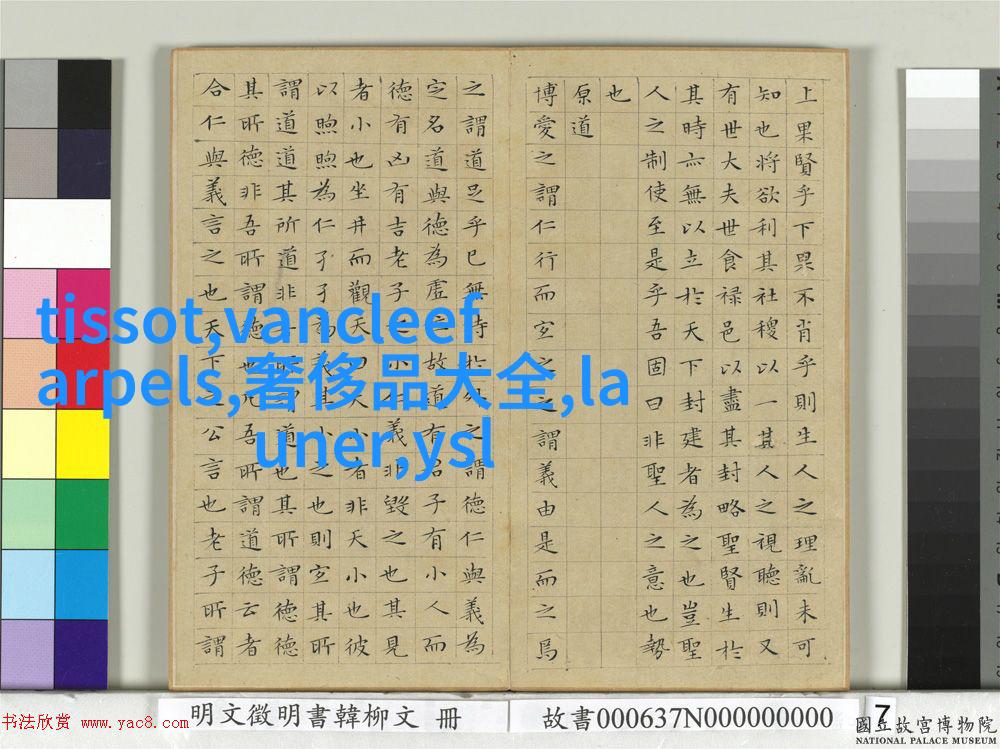 上果賢乎下果不肖乎則生人之理亂未可
知也將欲利其社稷以一其人之視聽則又
有世大夫世食祿邑以盡其封略聖賢生於
其時亦無以立於天下封建者為之也豈聖
人之制使至是乎吾固曰非聖人之意也勢
也
原道
博愛之謂仁行而宜之之謂義由是而之焉
之謂道足乎已無待於外之謂德仁與義為
定名道與德為虛位故道有君子有小人而
德有凶有吉老子之小仁義非毀之也其見
者小也坐井而觀天曰天小者非天小也彼
以煦煦為仁孑孑為義其小之也則宜其所
謂道道其所道非吾所謂道也其所謂德德
其所德非吾所謂德也凡吾所謂道德云者
合仁與義言之也天下之公言也老子所謂
tissot,vancleef
arpels,奢侈品大全,la
uner,ysl
明文徵明書韓柳文 冊
故書000637N000000000
7
國立故宮博物院
NATIONAL PALACE MUSEUM
书法欣赏 www.yac8.com